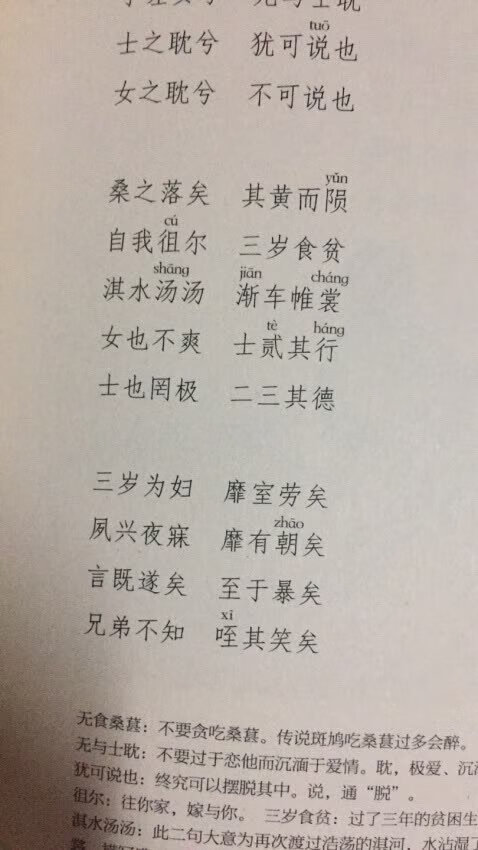 无与士耽
tuō
士之耽兮 犹可说也
女之耽兮 不可说也
yǔn
桑之落矣 其黄而陨
cú
自我徂尔 三岁食贫
shāng jiān cháng
淇水汤汤 渐车帷裳
tè háng
女也不爽 士贰其行
士也罔极 二三其德
三岁为妇 靡室劳矣
zhāo
夙兴夜寐 靡有朝矣
言既遂矣 至于暴矣
xì
兄弟不知 咥其笑矣
无食桑葚：不要贪吃桑葚。传说斑鸠吃桑葚过多会醉。
无与士耽：不要过于恋他而沉湎于爱情。耽，极爱、沉
犹可说也：终究可以摆脱其中。说，通“脱”。
徂尔：往你家，嫁与你。 三岁食贫：过了三年的贫困生
淇水汤汤：此二句大意为再次渡过浩荡的淇河，水沾湿了